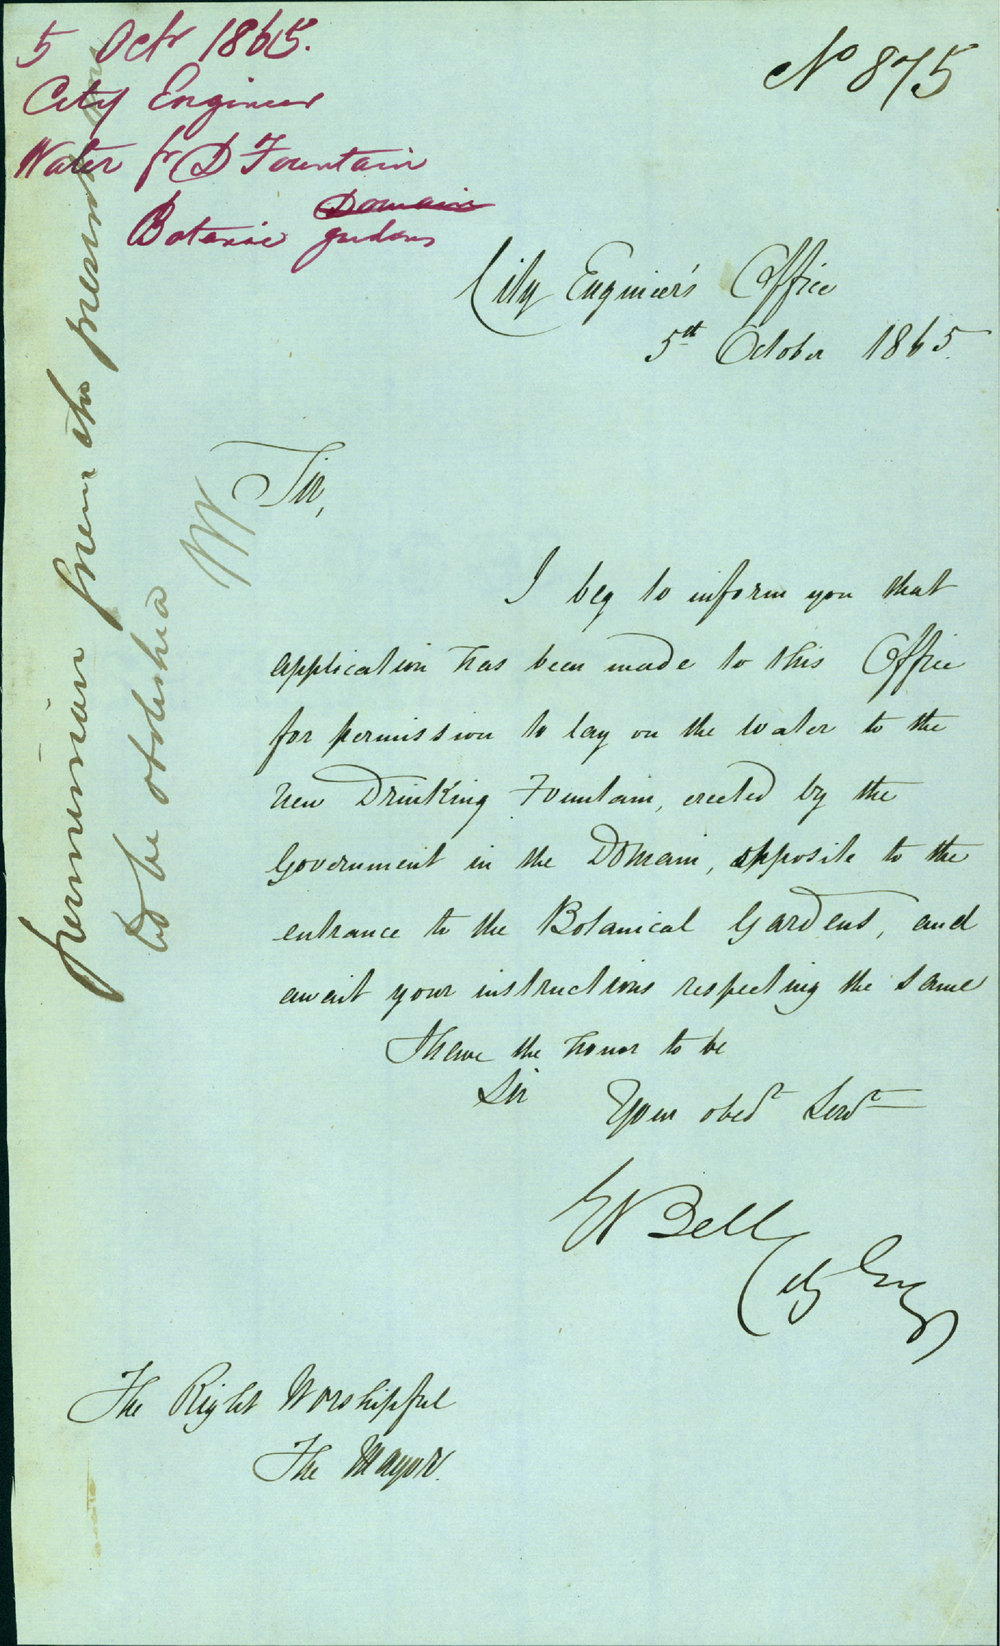 5 Octr 1865.
City Engineer
Water fr D Fountain
Domain
Botanic gardens
No 875
City Engineer's Office
5th October 1865.
Sir,
I beg to inform you that
application has been made to this Office
for permission to lay on the water to the
new Drinking Fountain, erected by the
Government in the Domain, opposite to the
entrance to the Botanical Gardens, and
await your instructions respecting the same
I have the honor to be
Sir
Your obedt Servt
E Bell
City Engr
The Right Worshipful
The Mayor.
permission from the
to be